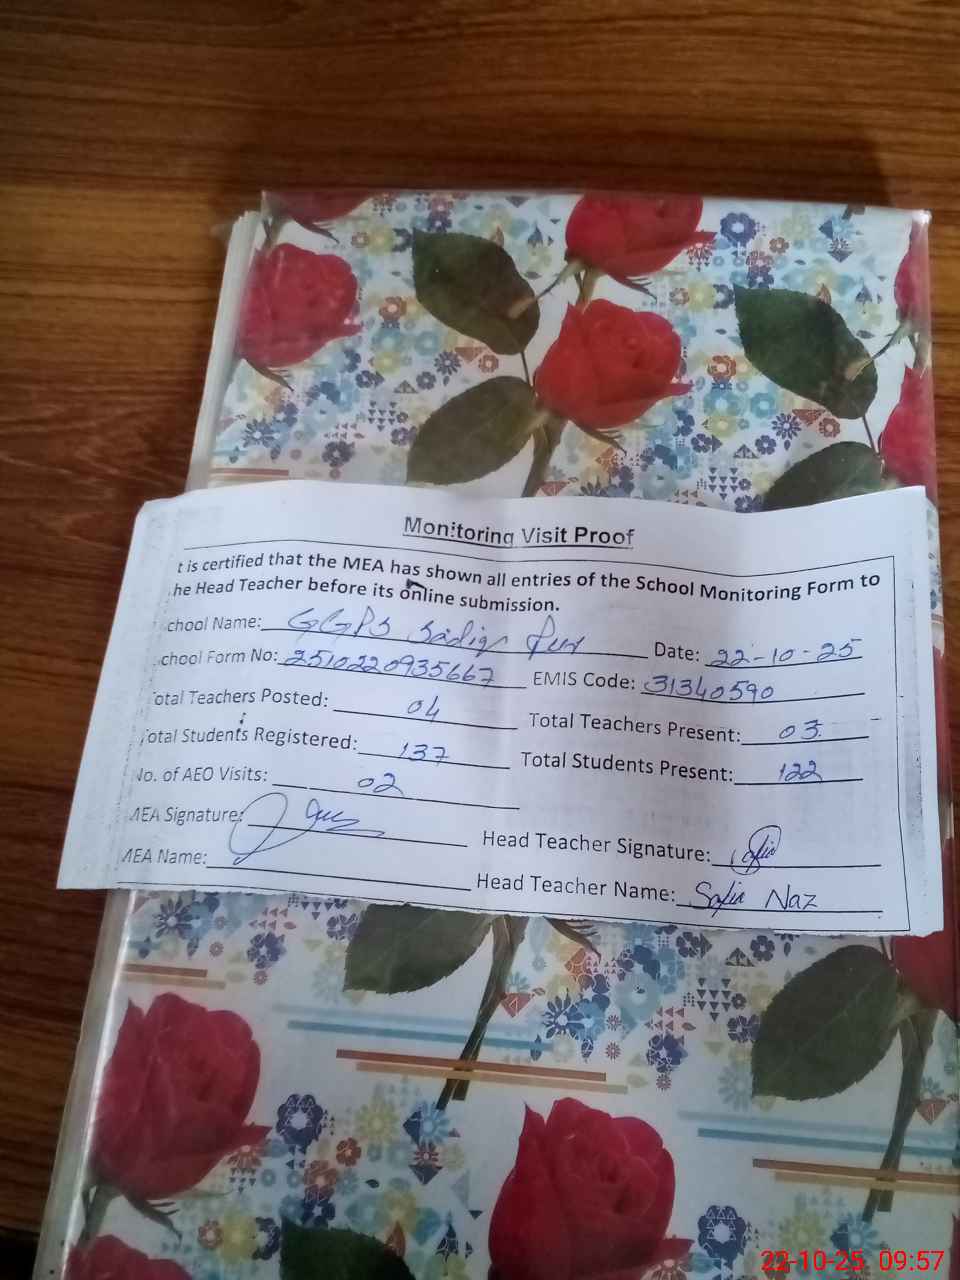 Monitoring Visit Proof
t is certified that the MEA has shown all entries of the School Monitoring Form to
he Head Teacher before its online submission.
chool Name: GGPS Sadiq Pur Date: 22-10-25
chool Form No: 2510220935667 EMIS Code: 31340590
otal Teachers Posted: 04 Total Teachers Present: 03
otal Students Registered: 137 Total Students Present: 122
No. of AEO Visits: 02
MEA Signature: Head Teacher Signature: Safia
MEA Name: Head Teacher Name: Safia Naz
22-10-25 09:57